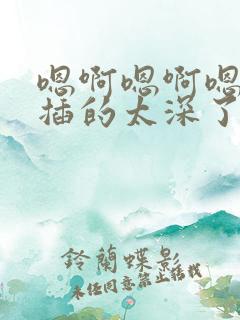 嗯啊嗯啊嗯
插的太深了
铃蘭蝶影
未经同意禁止搭载